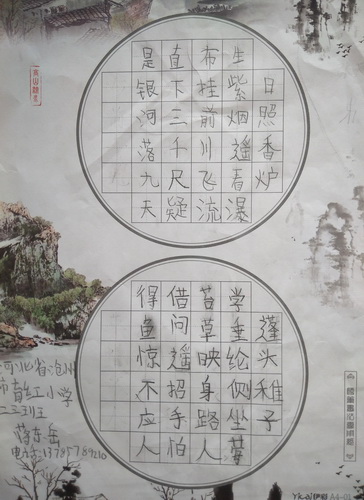 日照香炉
生紫烟遥看瀑
布桂前川飞流
直下三千尺疑
是银河落九天
蓬头稚子
学垂纶侧坐莓
苔草映身路人
借问遥招手怕
得鱼惊不应人
河北省沧州
市育红小学
电话